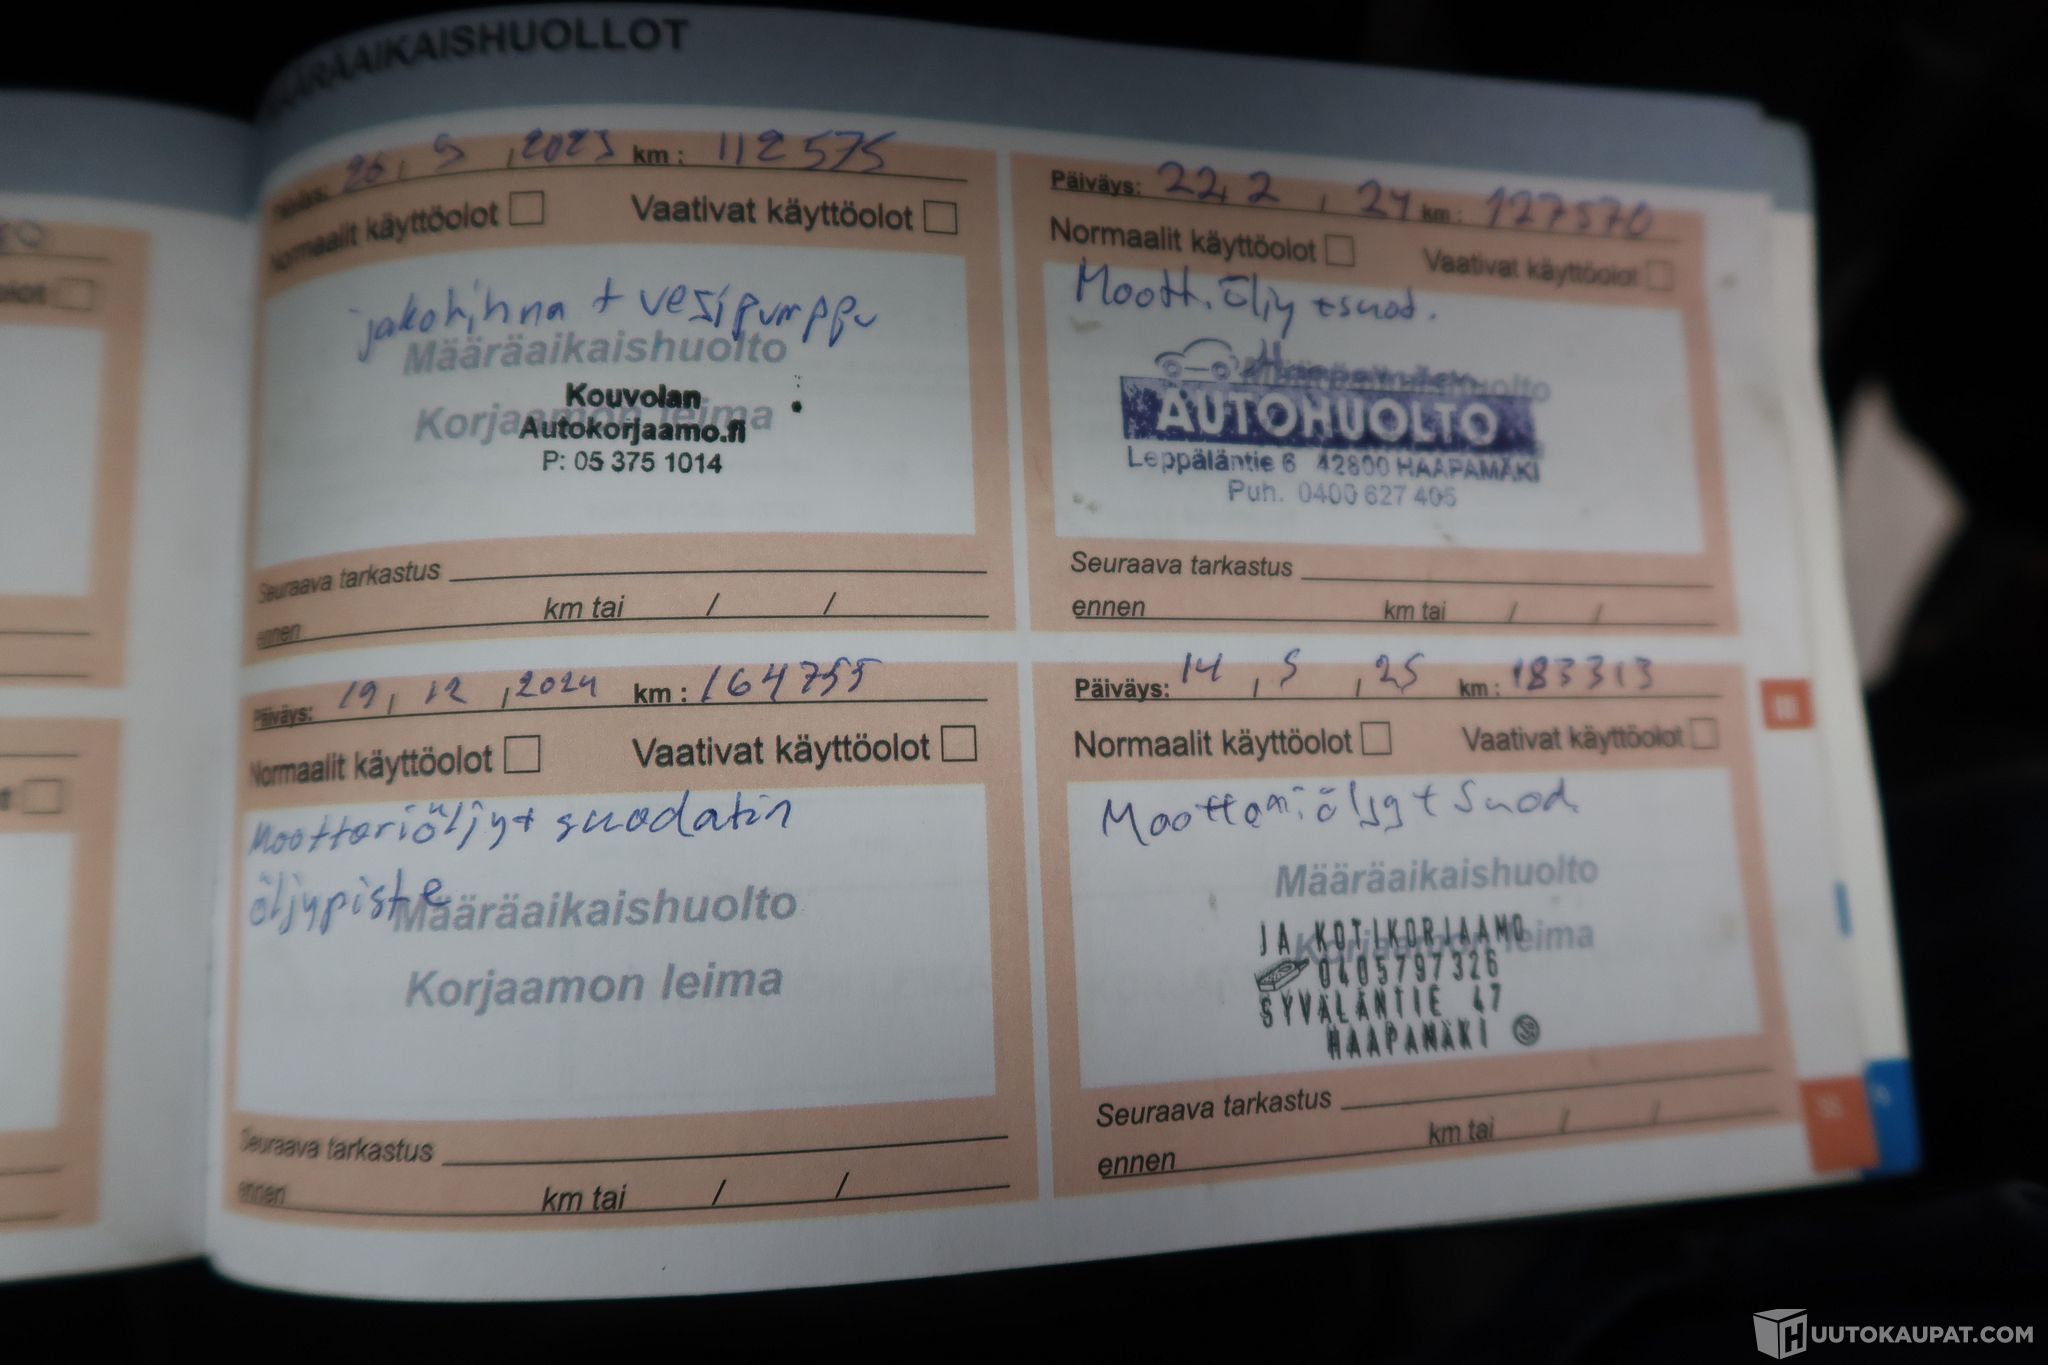 MÄÄRÄAIKAISHUOLLOT
Päiväys: 26 , 9 , 2023 km : 112575
Normaalit käyttöolot Vaativat käyttöolot
jakohihna + vesipumppu
Määräaikaishuolto
Korjaamon leima
Kouvolan
Autokorjaamo.fi
P: 05 375 1014
Seuraava tarkastus
ennen km tai / /
Päiväys: 22, 2 , 24 km : 127570
Normaalit käyttöolot Vaativat käyttöolot
Moott. öljy + suod.
Määräaikaishuolto
AUTOHUOLTO
Leppäläntie 6 42800 HAAPAMÄKI
Puh. 0400 627 405
Seuraava tarkastus
ennen km tai / /
Päiväys: 19 , 12 , 2024 km : 164755
Normaalit käyttöolot Vaativat käyttöolot
Moottoriöljy + suodatin
öljypiste
Määräaikaishuolto
Korjaamon leima
Seuraava tarkastus
ennen km tai / /
Päiväys: 14 , 5 , 25 km : 183313
Normaalit käyttöolot Vaativat käyttöolot
Moottoriöljy + suod.
Määräaikaishuolto
Korjaamon leima
JA KOTIKORJAAMO
0405797326
SYVÄLÄNTIE 47
HAAPAMÄKI
Seuraava tarkastus
ennen km tai / /
HUUTOKAUPAT.COM